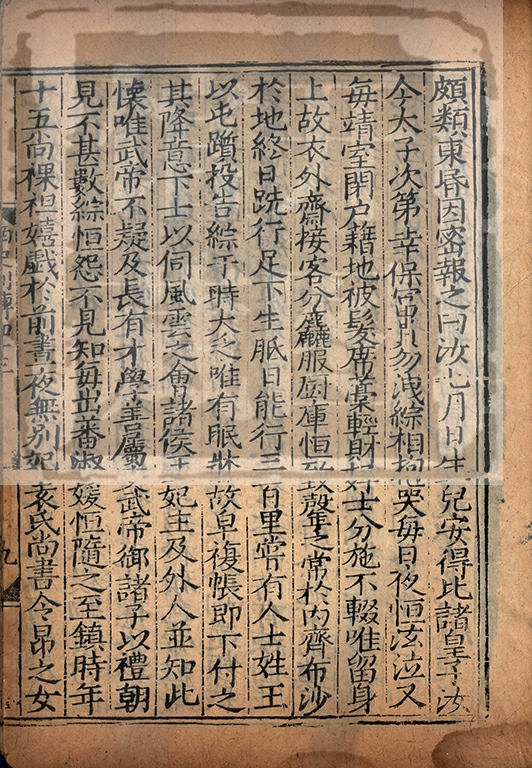 頗類東昏因密報之曰汝七月日生兒安得比諸皇子汝
今太子次第幸保富貴勿洩綜相抱哭每日夜恒泫泣又
每靖室閉户藉地被髮席藁輕財好士分施不輟唯留身
上故衣外齋接客分麤服厨庫恒致罄乏常於内齊布沙
於地終日跣行足下生胝日能行三百里嘗有人士姓王
以屯躓投告綜于時大乏唯有眠牀故皁複帳即下付之
其降意下士以伺風雲之會諸侯王妃王及外人並知此
懷唯武帝不疑及長有才學善屬文武帝御諸子以禮朝
見不甚數綜恒怨不見知每出番淑媛恒隨之至鎮時年
十五尚裸袒嬉戲於前晝夜無别妃袁氏尚書令昂之女
九